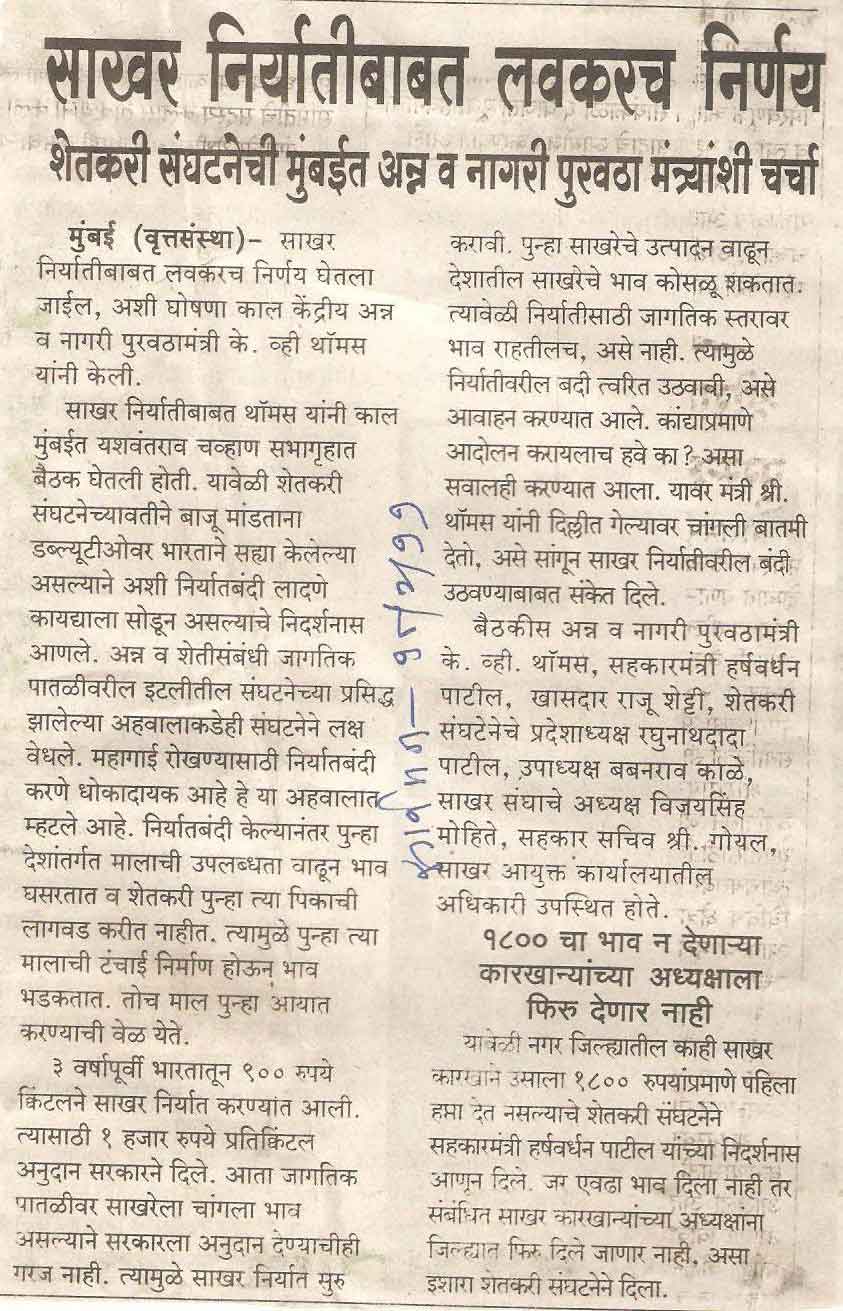 साखर निर्यातीबाबत लवकरच निर्णय
शेतकरी संघटनेची मुंबईत अन्न व नागरी पुरवठा मंत्र्यांशी चर्चा
मुंबई (वृत्तसंस्था)- साखर
निर्यातीबाबत लवकरच निर्णय घेतला
जाईल, अशी घोषणा काल केंद्रीय अन्न
व नागरी पुरवठामंत्री के. व्ही थॉमस
यांनी केली.
साखर निर्यातीबाबत थॉमस यांनी काल
मुंबईत यशवंतराव चव्हाण सभागृहात
बैठक घेतली होती. यावेळी शेतकरी
संघटनेच्यावतीने बाजू मांडताना
डब्ल्यूटीओवर भारताने सह्या केलेल्या
असल्याने अशी निर्यातबंदी लादणे
कायद्याला सोडून असल्याचे निदर्शनास
आणले. अन्न व शेतीसंबंधी जागतिक
पातळीवरील इटलीतील संघटनेच्या प्रसिद्ध
झालेल्या अहवालाकडेही संघटनेने लक्ष
वेधले. महागाई रोखण्यासाठी निर्यातबंदी
करणे धोकादायक आहे हे या अहवालात
म्हटले आहे. निर्यातबंदी केल्यानंतर पुन्हा
देशांतर्गत मालाची उपलब्धता वाढून भाव
घसरतात व शेतकरी पुन्हा त्या पिकाची
लागवड करीत नाहीत. त्यामुळे पुन्हा त्या
मालाची टंचाई निर्माण होऊन भाव
भडकतात. तोच माल पुन्हा आयात
करण्याची वेळ येते.
३ वर्षापूर्वी भारतातून ९०० रुपये
क्विंटलने साखर निर्यात करण्यांत आली.
त्यासाठी १ हजार रुपये प्रतिक्विंटल
अनुदान सरकारने दिले. आता जागतिक
पातळीवर साखरेला चांगला भाव
असल्याने सरकारला अनुदान देण्याचीही
गरज नाही. त्यामुळे साखर निर्यात सुरु
करावी. पुन्हा साखरेचे उत्पादन वाढून
देशातील साखरेचे भाव कोसळू शकतात.
त्यावेळी निर्यातीसाठी जागतिक स्तरावर
भाव राहतीलच, असे नाही. त्यामुळे
निर्यातीवरील बदी त्वरित उठवावी, असे
आवाहन करण्यात आले. कांद्याप्रमाणे
आदोलन करायलाच हवे का? असा
सवालही करण्यात आला. यावर मंत्री श्री.
थॉमस यांनी दिल्लीत गेल्यावर चांगली बातमी
देतो, असे सांगून साखर निर्यातीवरील बंदी
उठवण्याबाबत संकेत दिले.
बैठकीस अन्न व नागरी पुरवठामंत्री
के. व्ही. थॉमस, सहकारमंत्री हर्षवर्धन
पाटील, खासदार राजू शेट्टी, शेतकरी
संघटेनेचे प्रदेशाध्यक्ष रघुनाथदादा
पाटील, उपाध्यक्ष बबनराव काळे,
साखर संघाचे अध्यक्ष विजयसिंह
मोहिते, सहकार सचिव श्री. गोयल,
साखर आयुक्त कार्यालयातील
अधिकारी उपस्थित होते.
१८०० चा भाव न देणाऱ्या
कारखान्यांच्या अध्यक्षाला
फिरु देणार नाही
यावेळी नगर जिल्ह्यातील काही साखर
कारखाने उसाला १८०० रुपयांप्रमाणे पहिला
हप्ता देत नसल्याचे शेतकरी संघटनेने
सहकारमंत्री हर्षवर्धन पाटील यांच्या निदर्शनास
आणून दिले. जर एवढा भाव दिला नाही तर
संबंधित साखर कारखान्यांच्या अध्यक्षांना
जिल्ह्यात फिरु दिले जाणार नाही, असा
इशारा शेतकरी संघटनेने दिला.